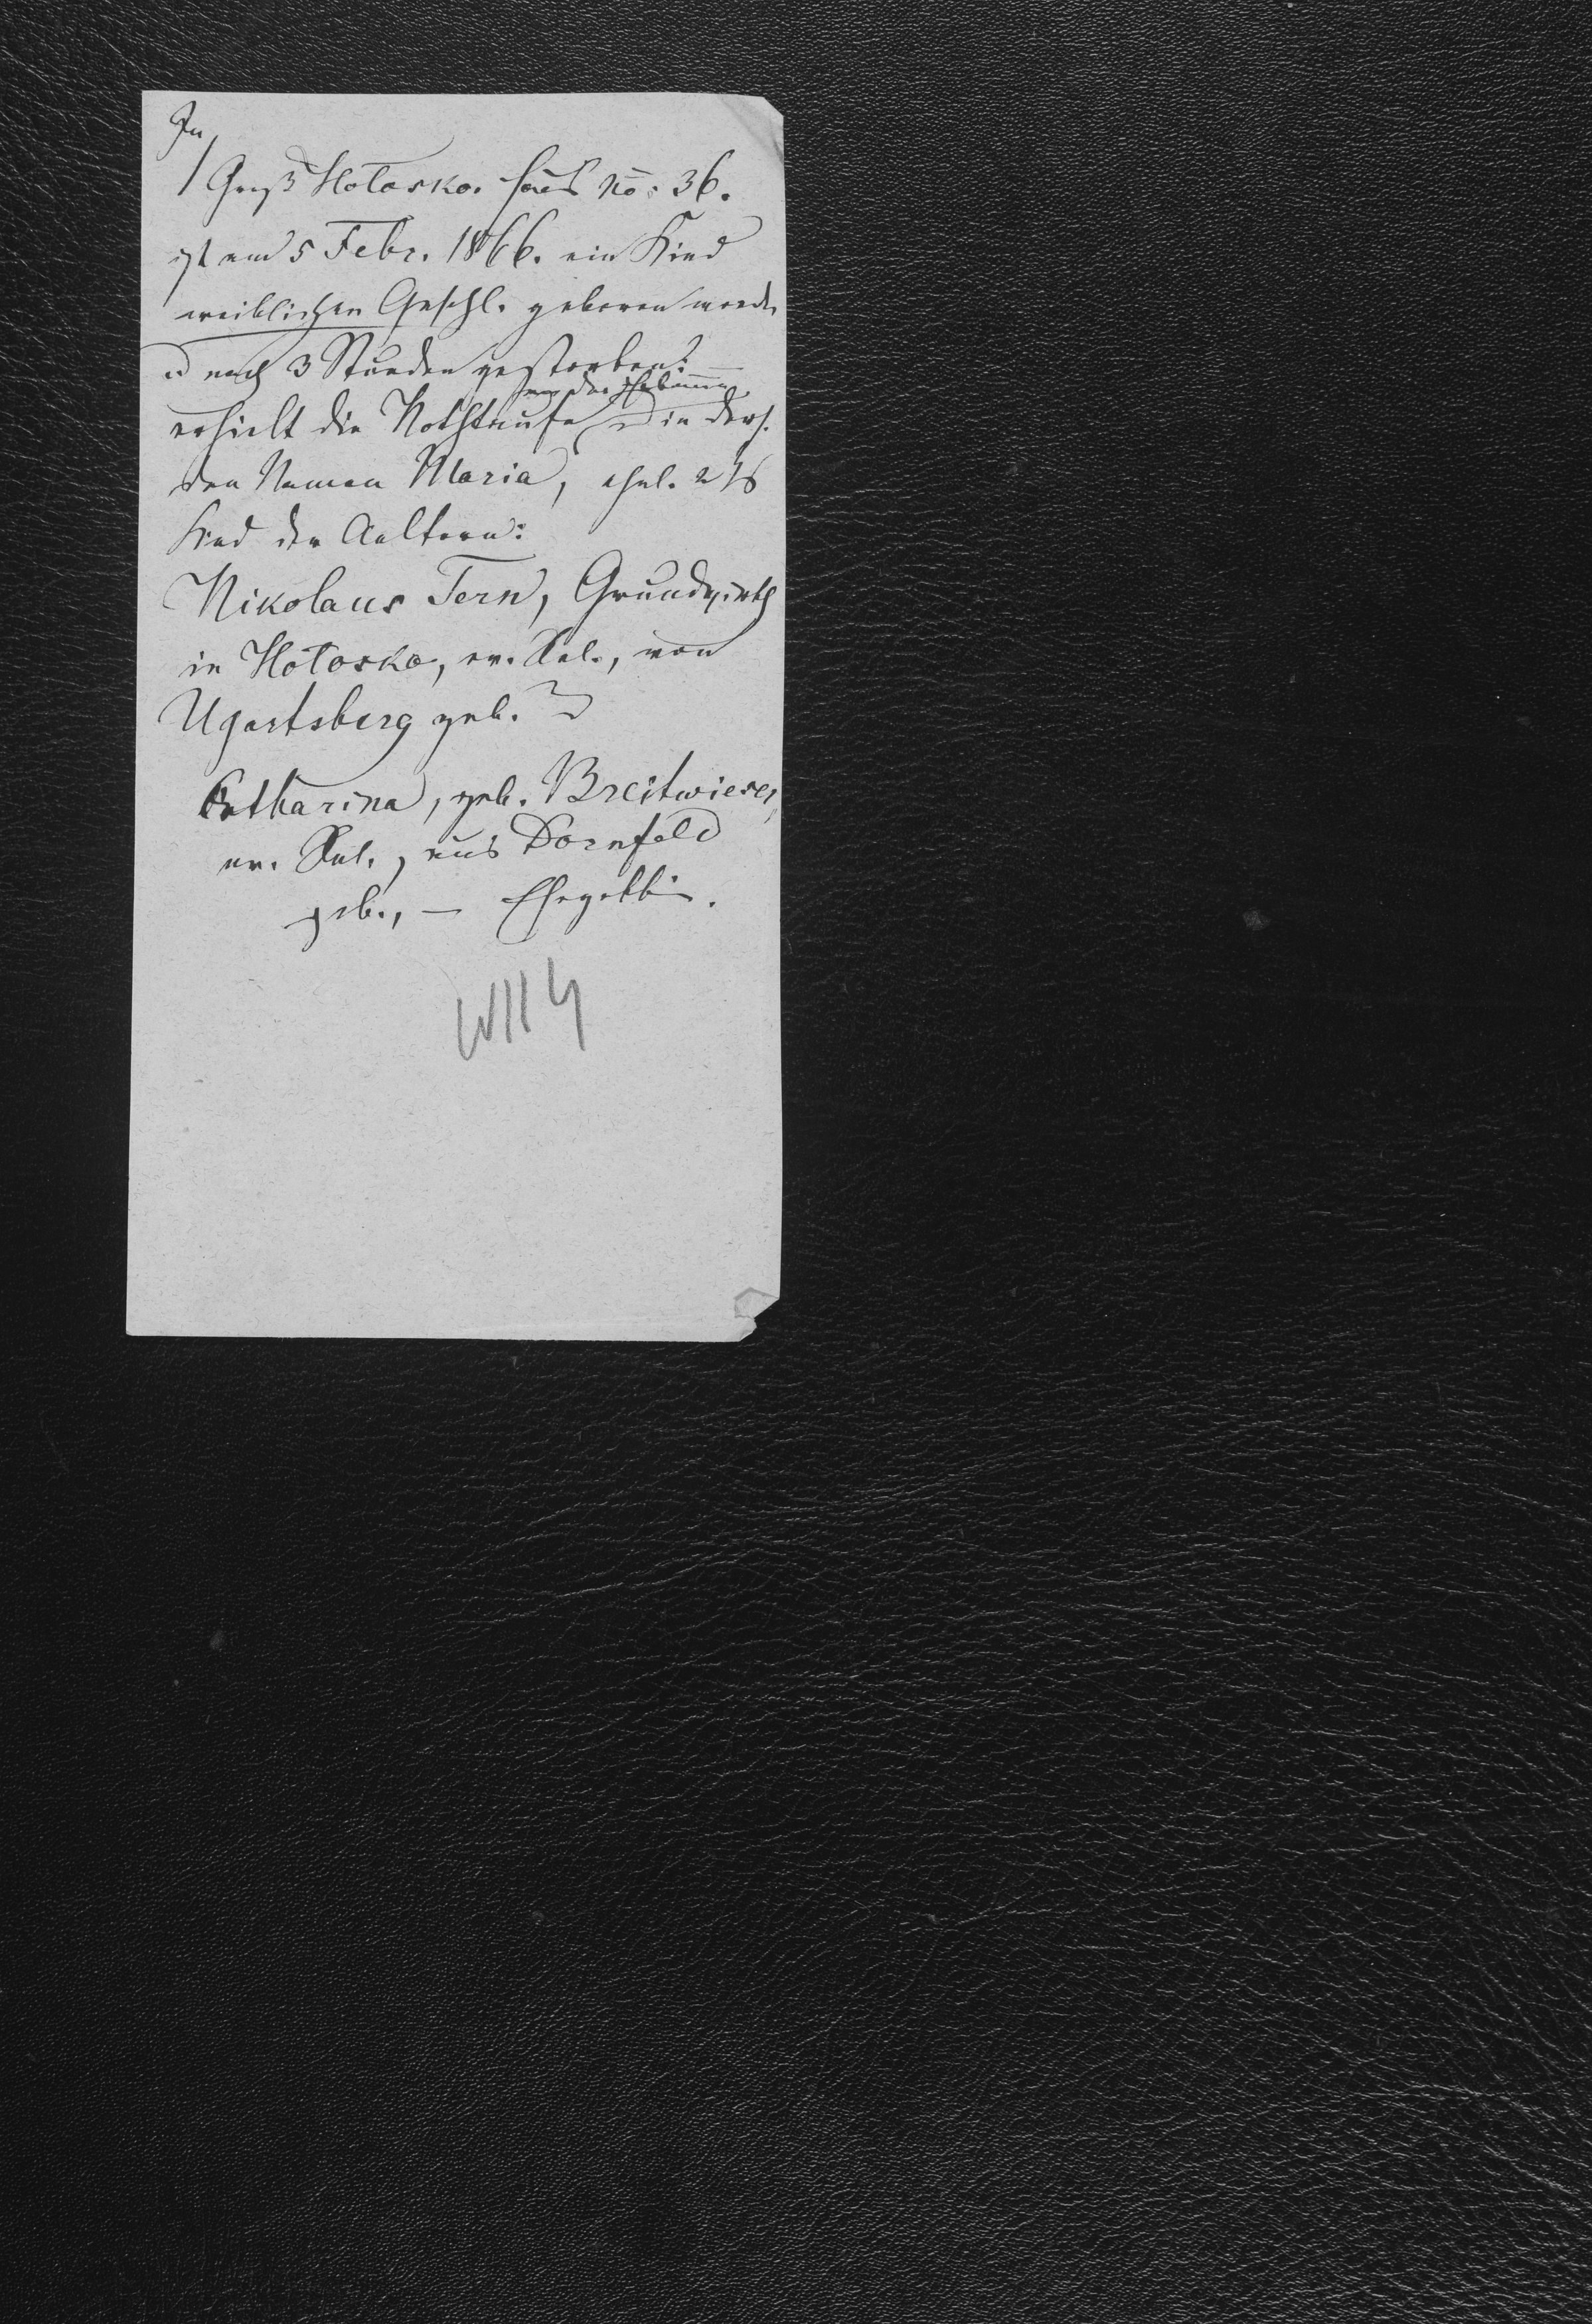 In
Groß Hołosko. Haus No: 36.
ist am 5 Febr. 1866. ein Kind
weiblichen Geschl. geboren word.
u nach 3 Stunden gestorben:
von der Hebamme
erhielt die Nothtaufe u in ders.
den Namen Maria, ehel. 2tes
Kind der Aeltern:
Nikolaus Tern, Grundwirth
in Hołosko, ev. Rel., von
Ugartsberg geb. u
Katharina, geb. Breitwieser,
ev. Rel., aus Dornfeld
geb., — Ehegattin.